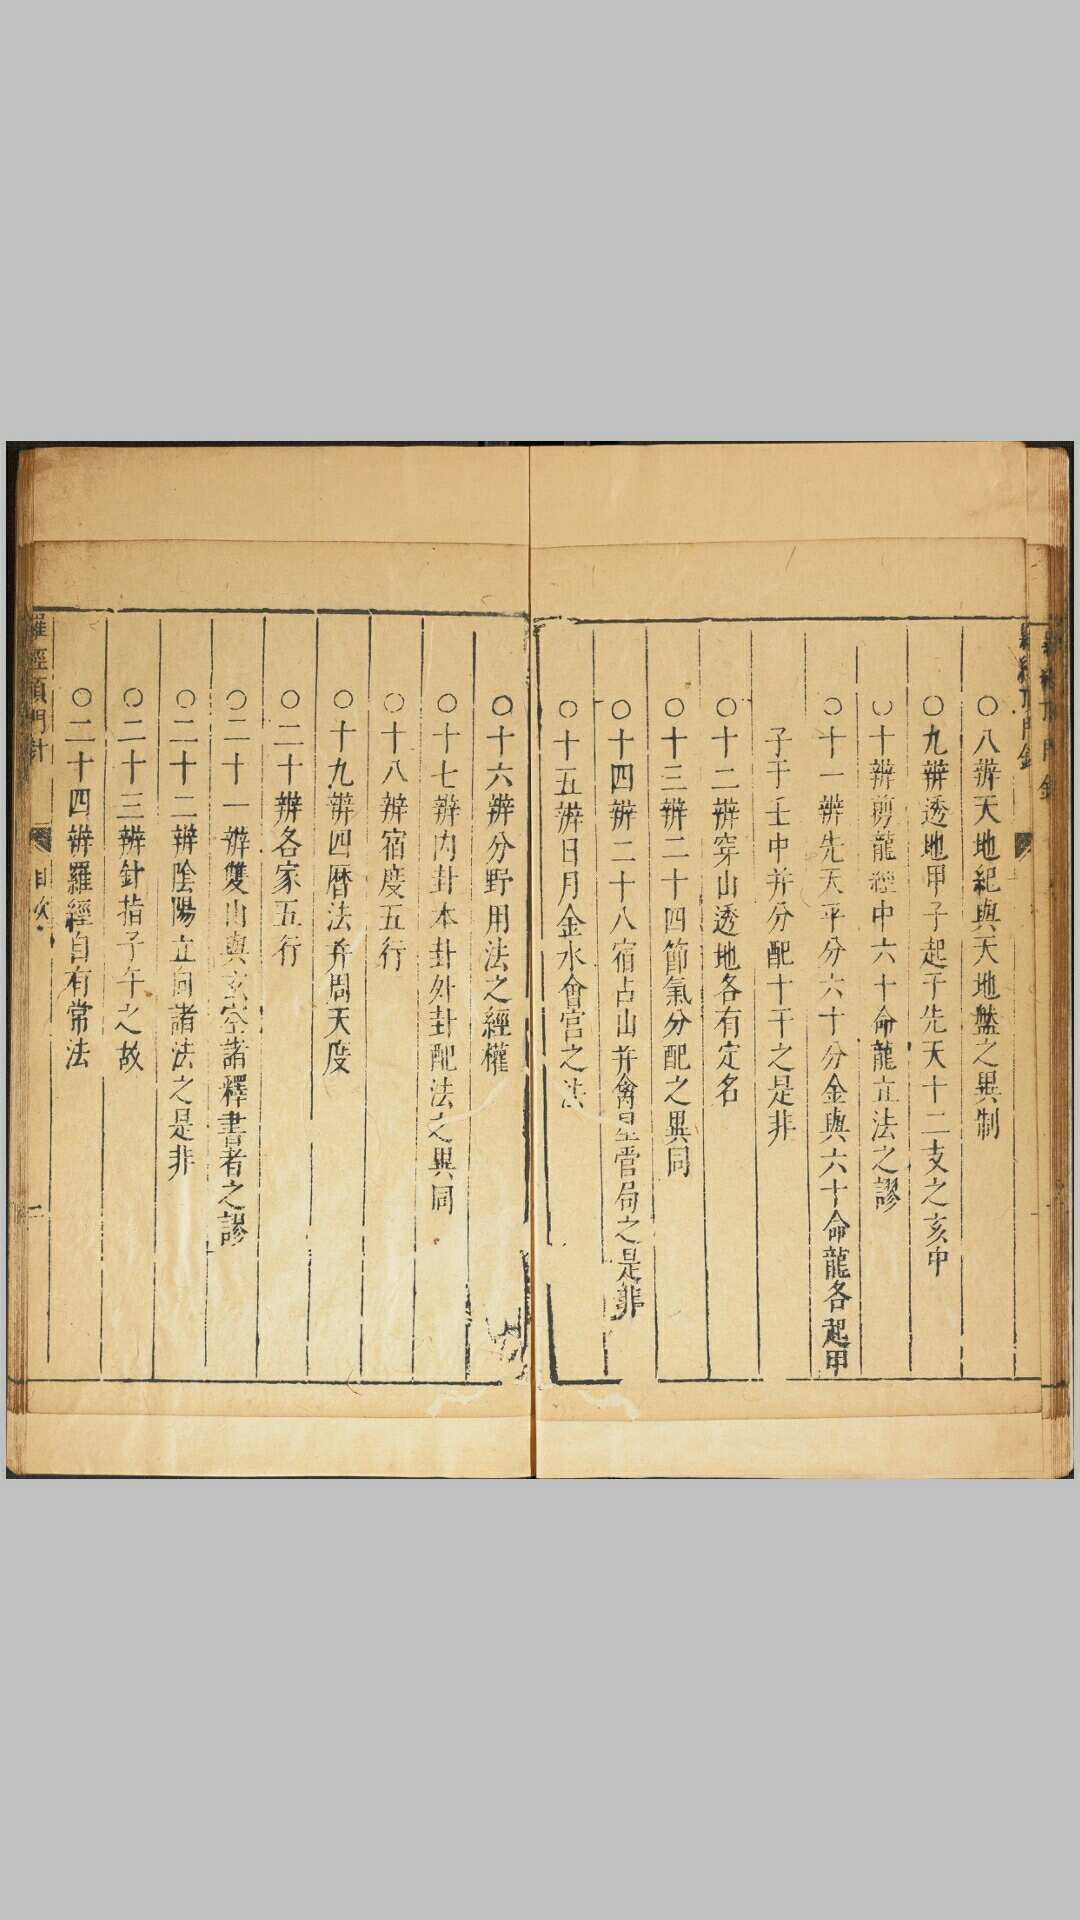 ○八辨天地紀與天地盤之異制
○九辨透地甲子起于先天十二支之亥中
○十辨剪龍經中六十命龍立法之謬
○十一辨先天平分六十分金與六十命龍各起甲
子于壬中并分配十干之是非
○十二辨穿山透地各有定名
○十三辨二十四節氣分配之異同
○十四辨二十八宿占山并禽星管局之是非
○十五辨日月金水會宮之法
○十六辨分野用法之經權
○十七辨內卦本卦外卦配法之異同
○十八辨宿度五行
○十九辨四曆法并周天度
○二十辨各家五行
○二十一辨雙山與玄空諸釋書者之謬
○二十二辨陰陽立向諸法之是非
○二十三辨針指子午之故
○二十四辨羅經自有常法
羅經頂門針 目次 二